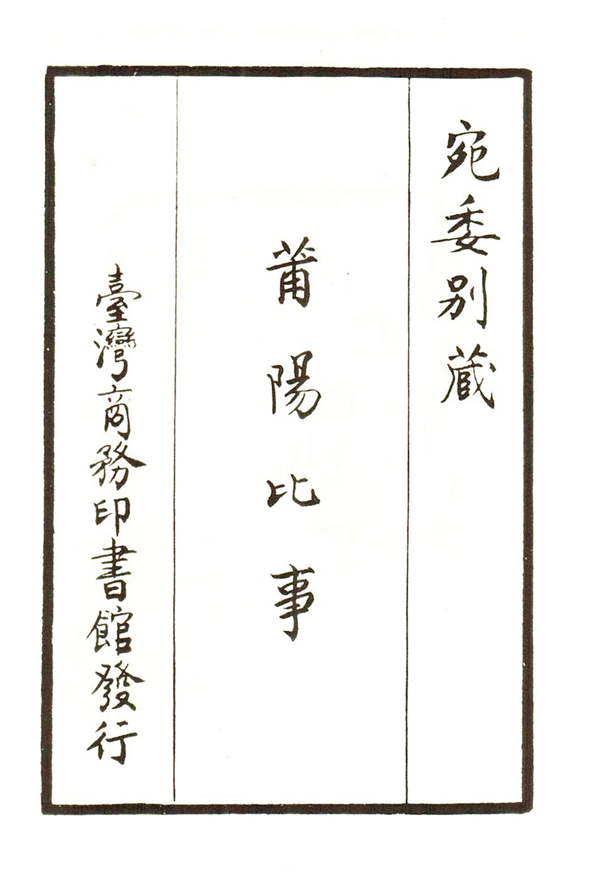 宛委別蔵
莆陽比事
臺灣商務印書館發行